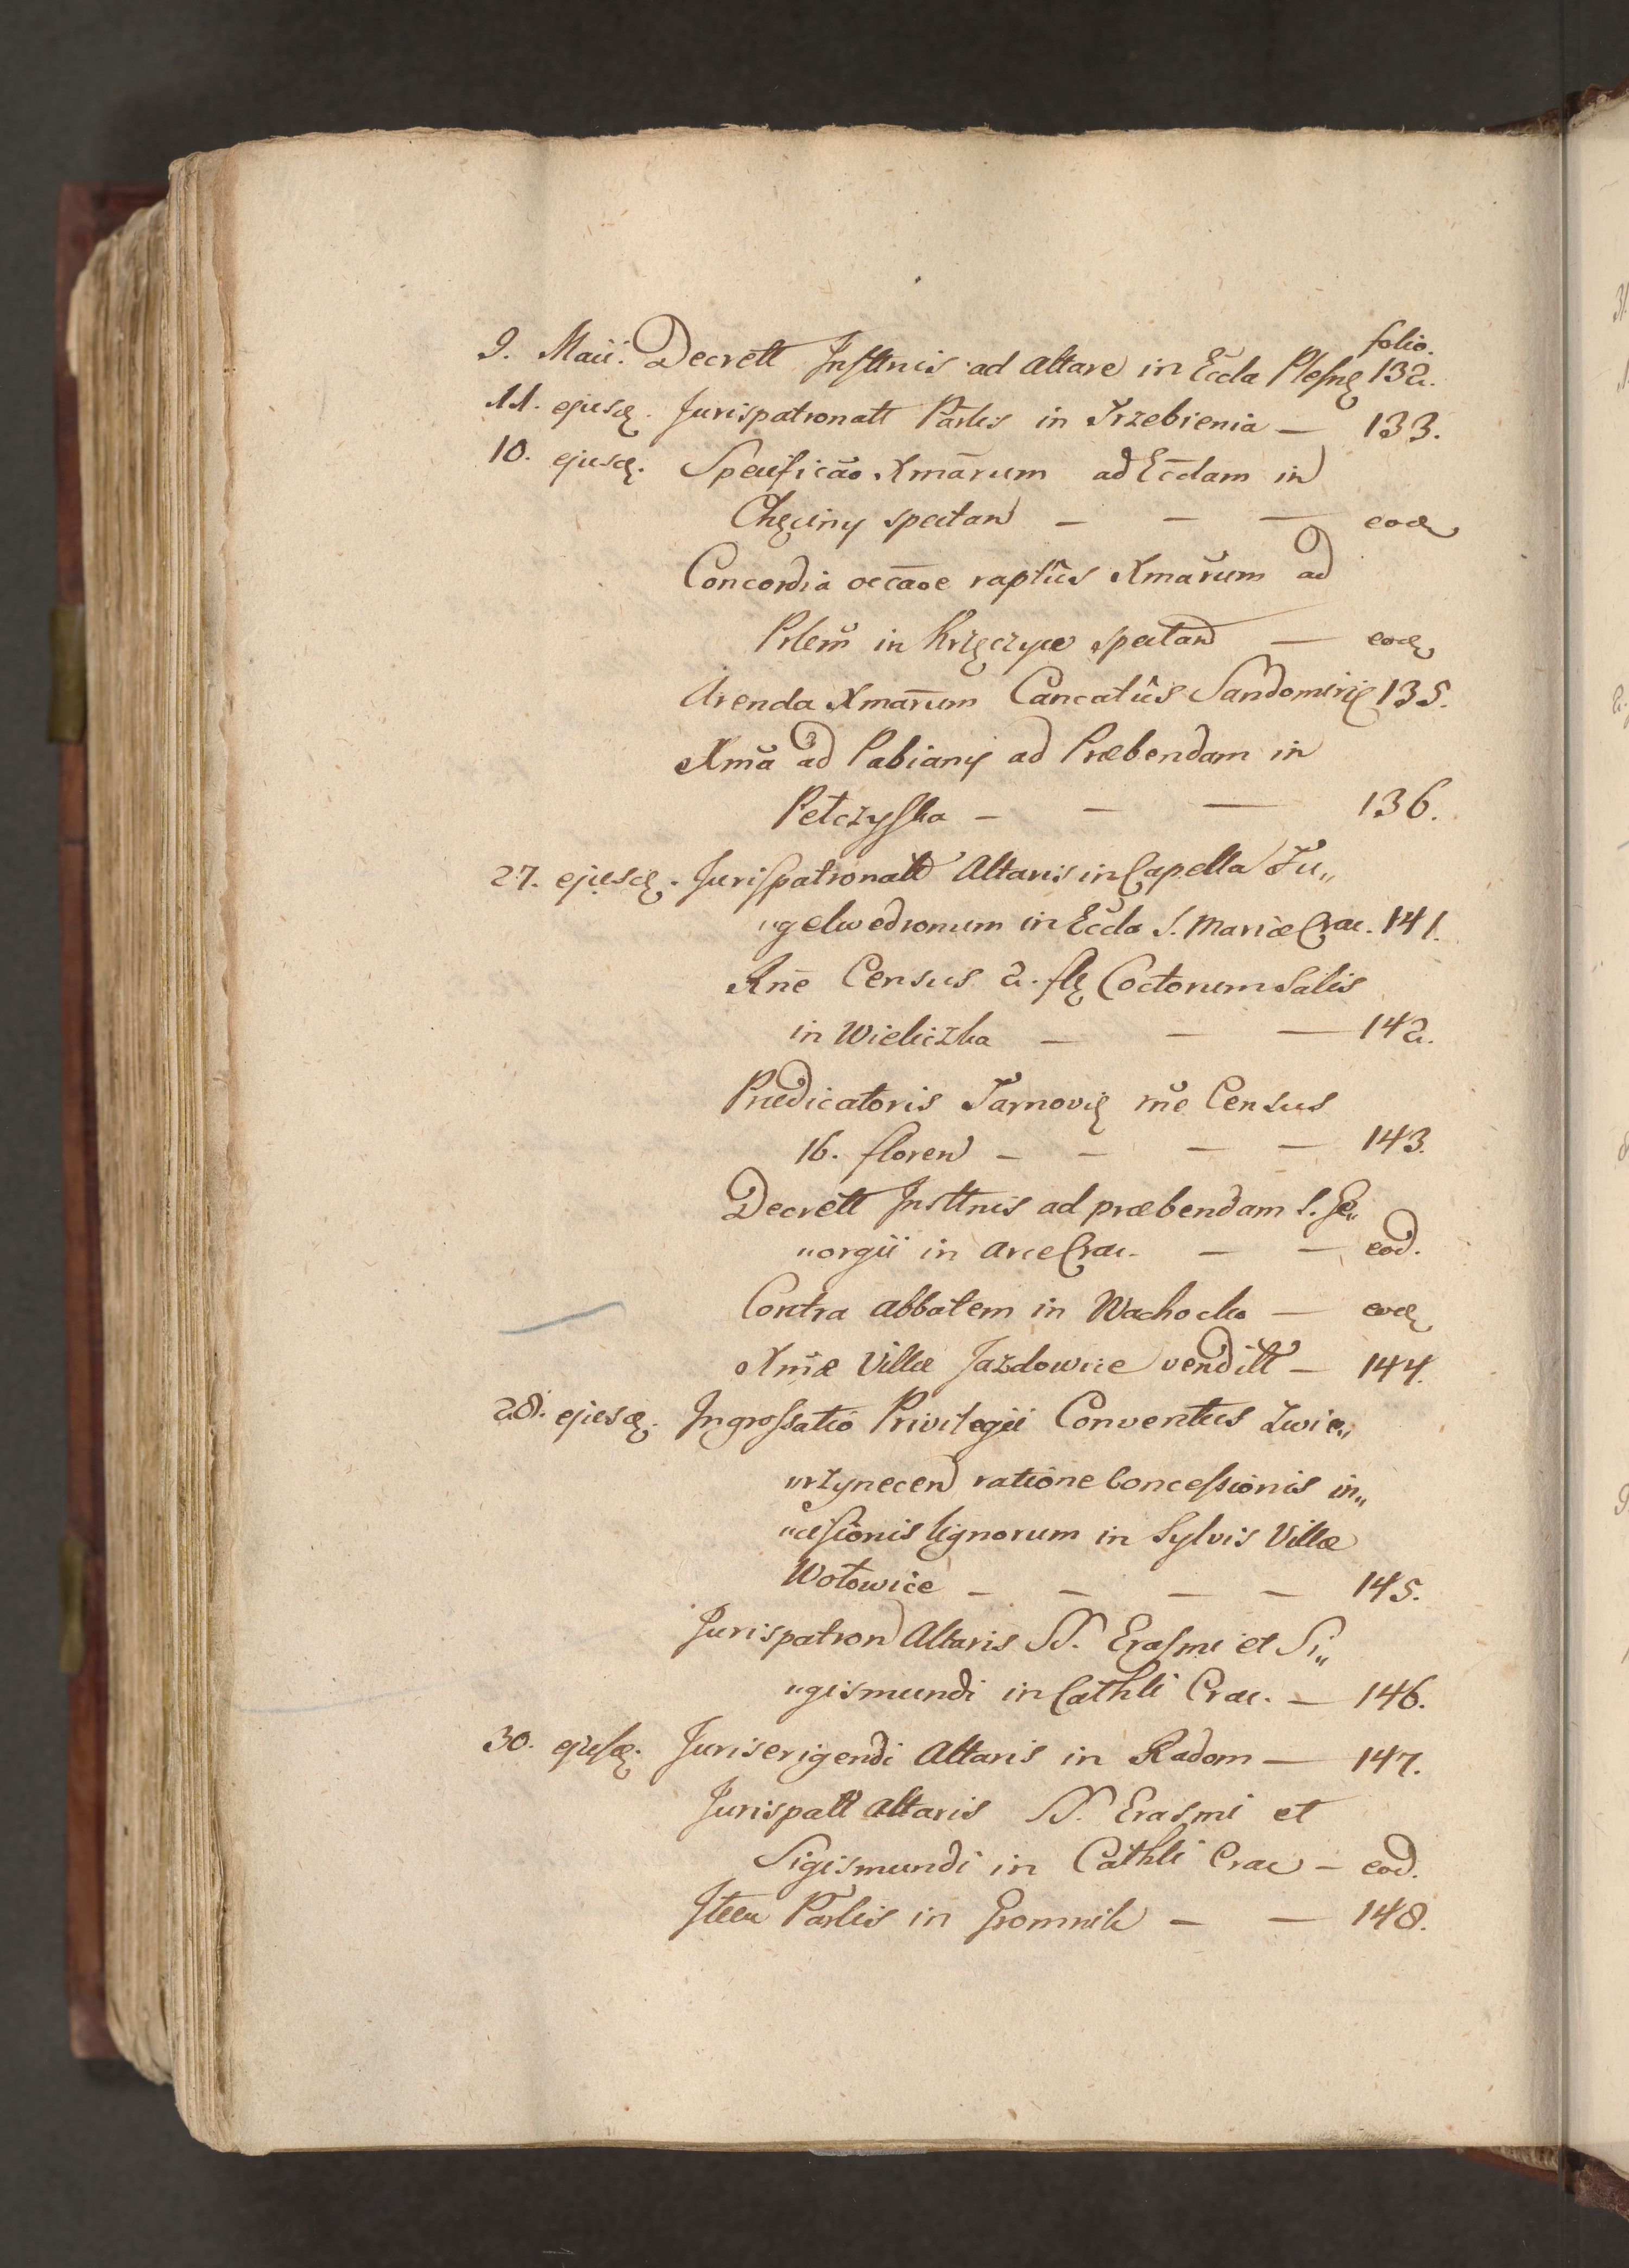 folio.
9. Maii. Decrett Insttnis ad Altare in Eccla Plesnę 132.
11. ejusdę. Jurispatronatt Parlis in Trzebienia — 133.
10. ejusdę. Specificão Xmārum ad Ecclam in
Chęciny spectan — — — eodę
Concordia occãoe raptûs Xmarum ad
Prlem in Krzęczyce spectan — eodę
Arenda Xmarum Cancatûs Sandomirię 135.
Xma ad Pabiany ad Præbendam in
Petczyska — — — 136.
27. ejusdę. Jurispatronatt Altaris in Capella Fu„
„gelwedronum in Eccla S. Mariæ Crac. 141.
Rne Census 2. flę Coctorum Salis
in Wieliczka — — — 142.
Prædicatoris Tarnovię rne Census
16. floren — — — — 143.
Decrett Insttnis ad præbendam S. Ge„
„orgii in Arce Crac. — — eod.
Contra abbatem in Wachocko — eodę
Xmæ Villæ Jazdowice venditt — 144.
28. ejusdę. Ingrossatio Privilegii Conventus Zwie„
„rzynecen ratione Concessionis in„
„cisionis lignorum in Sylvis Villæ
Wołowice — — — — 145.
Jurispatron Altaris SS. Erasmi et Si„
„gismundi in Cathli Crac. — 146.
30. ejusdę. Juris erigendi Altaris in Radom — 147.
Jurispatt Altaris SS. Erasmi et
Sigismundi in Cathli Crac — eod.
Item Parlis in Gromnik — — 148.